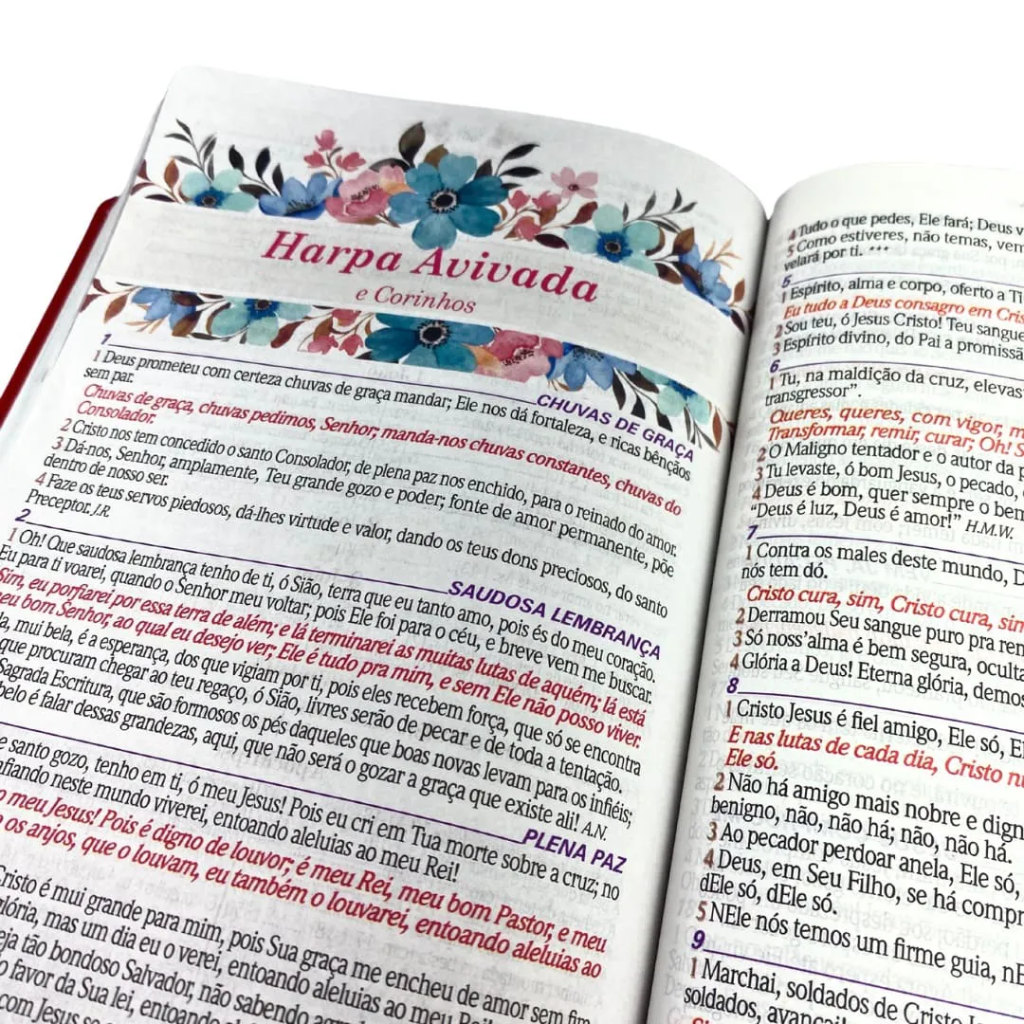 Harpa Avivada
e Corinhos
1
CHUVAS DE GRAÇA
1 Deus prometeu com certeza chuvas de graça mandar; Ele nos dá fortaleza, e ricas bênçãos
sem par.
Chuvas de graça, chuvas pedimos, Senhor; manda-nos chuvas constantes, chuvas do
Consolador.
2 Cristo nos tem concedido o santo Consolador, de plena paz nos enchido, para o reinado do amor.
3 Dá-nos, Senhor, amplamente, Teu grande gozo e poder; fonte de amor permanente, põe
dentro de nosso ser.
4 Faze os teus servos piedosos, dá-lhes virtude e valor, dando os teus dons preciosos, do santo
Preceptor. J.R.
2
SAUDOSA LEMBRANÇA
1 Oh! Que saudosa lembrança tenho de ti, ó Sião, terra que eu tanto amo, pois és do meu coração.
Eu para ti voarei, quando o Senhor meu voltar; pois Ele foi para o céu, e breve vem me buscar.
Sim, eu porfiarei por essa terra de além; e lá terminarei as muitas lutas de aquém; lá está
meu bom Senhor, ao qual eu desejo ver; Ele é tudo pra mim, e sem Ele não posso viver.
mui bela, é a esperança, dos que vigiam por ti, pois eles recebem força, que só se encontra
que procuram chegar ao teu regaço, ó Sião, livres serão de pecar e de toda a tentação.
Sagrada Escritura, que são formosos os pés daqueles que boas novas levam para os infiéis;
belo é falar dessas grandezas, aqui, que não será o gozar a graça que existe ali! A.N.
PLENA PAZ
e santo gozo, tenho em ti, ó meu Jesus! Pois eu cri em Tua morte sobre a cruz; no
neste mundo viverei, entoando aleluias ao meu Rei!
o meu Jesus! Pois é digno de louvor; é meu Rei, meu bom Pastor, e meu
os anjos, que o louvam, eu também o louvarei, entoando aleluias ao
Cristo é mui grande para mim, pois Sua graça me encheu de amor sem fim
mas um dia eu o verei, entoando aleluias ao meu Rei!
tão bondoso Salvador, não sabendo
favor da Sua lei, entoando
com Jesus
4 Tudo o que pedes, Ele fará; Deus
5 Como estiveres, não temas, vem
velará por ti. ***
5
1 Espírito, alma e corpo, oferto a Ti
Eu tudo a Deus consagro em
2 Sou teu, ó Jesus Cristo! Teu sangue
3 Espírito divino, do Pai a
6
1 Tu, na maldição da cruz, elevas
transgressor”.
Queres, queres, com vigor,
Transformar, remir, curar; Oh!
2 O Maligno tentador e o autor da
3 Tu levaste, ó bom Jesus, o pecado,
4 Deus é bom, quer sempre o bem
“Deus é luz, Deus é amor!” H.M.W.
7
1 Contra os males deste mundo,
nós tem dó.
Cristo cura, sim, Cristo cura, sim
2 Derramou Seu sangue puro pra
3 Só noss’alma é bem segura,
4 Glória a Deus! Eterna glória,
8
1 Cristo Jesus é fiel amigo, Ele só,
E nas lutas de cada dia, Cristo
Ele só.
2 Não há amigo mais nobre e
benigno, não, não há; não, não há.
3 Ao pecador perdoar anela, Ele só,
4 Deus, em Seu Filho, se há
dEle só, dEle só.
5 NEle nós temos um firme guia,
9
1 Marchai, soldados de Cristo
soldados,